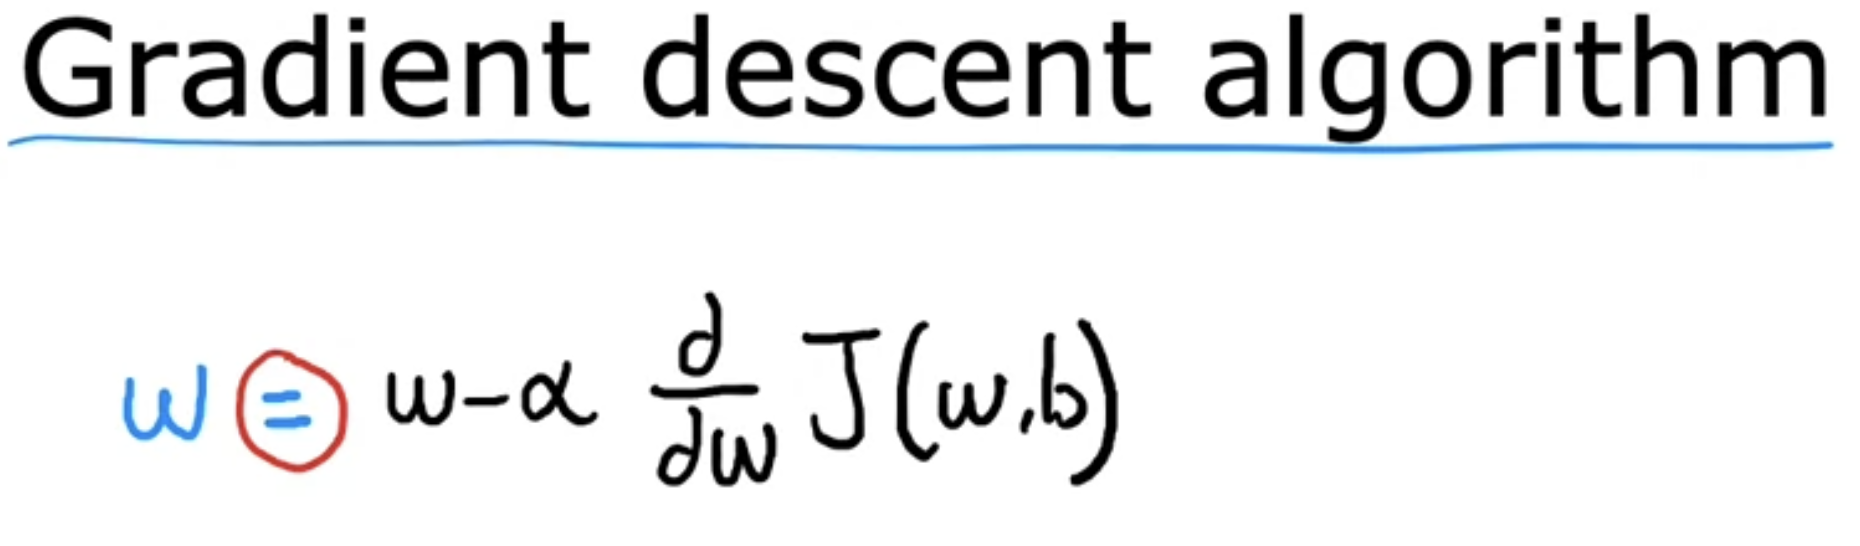 Gradient descent algorithm
w = w - α d/dw J(w,b)